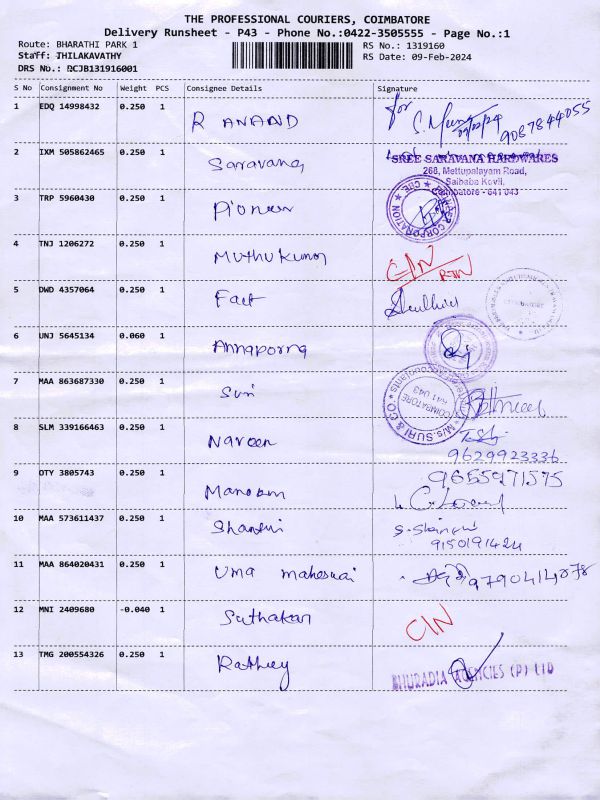 THE PROFESSIONAL COURIERS, COIMBATORE
Delivery Runsheet - P43 - Phone No.:0422-3505555 - Page No.:1
Route: BHARATHI PARK 1 RS No.: 1319160
Staff: THILAKAVATHY RS Date: 09-Feb-2024
DRS No.: BCJB131916001
S No Consignment No Weight PCS Consignee Details Signature
1 EDQ 14998432 0.250 1 R ANAND for 9087844055
2 IXM 505862465 0.250 1 Saravana SREE SARAVANA HARDWARES
268, Mettupalayam Road,
Saibaba Kovil,
Coimbatore - 641 043
3 TRP 5960430 0.250 1 Pioneer
4 TNJ 1206272 0.250 1 Muthukumar C-IN
RTN
5 DWD 4357064 0.250 1 Fact
6 UNJ 5645134 0.060 1 Annaporna
7 MAA 863687330 0.250 1 Suri M/s. SURI & CO. COIMBATORE 641 043
8 SLM 339166463 0.250 1 Naveen
9629923336
9 OTY 3805743 0.250 1 Manoam 9655971575
10 MAA 573611437 0.250 1 Shanthi
9150191424
11 MAA 864020431 0.250 1 Uma maheswari 9790414078
12 MNI 2409680 -0.040 1 Suthakar CIN
13 TMG 200554326 0.250 1 Rathey BHURADIA AGENCIES (P) LTD